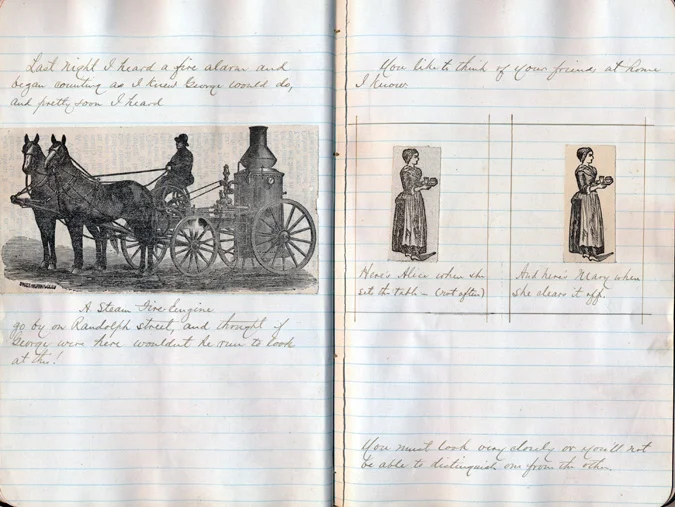 Last night I heard a fire alarm and
began counting as I knew George would do,
and pretty soon I heard
A Steam Fire Engine
go by on Randolph street, and thought if
George were here wouldn't he run to look
at this!
You like to think of your friends at home
I know.
Here's Alice when she
sets the table — (not often)
And here's Mary when
she clears it off.
You must look very closely or you'll not
be able to distinguish one from the other.